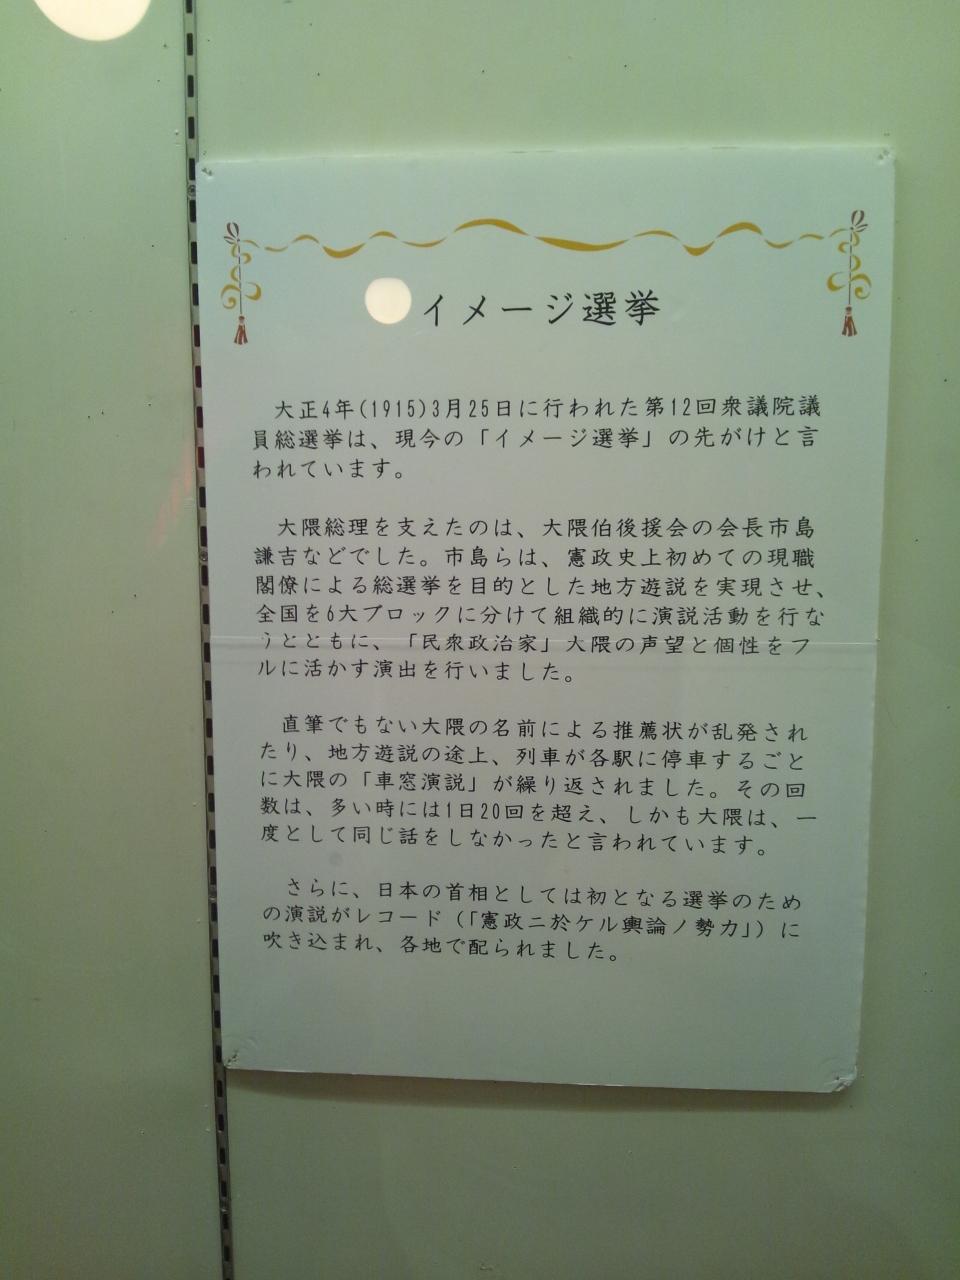 イメージ選挙
大正4年(1915)3月25日に行われた第12回衆議院議
員総選挙は、現今の「イメージ選挙」の先がけと言
われています。
大隈総理を支えたのは、大隈伯後援会の会長市島
謙吉などでした。市島らは、憲政史上初めての現職
閣僚による総選挙を目的とした地方遊説を実現させ、
全国を6大ブロックに分けて組織的に演説活動を行な
うとともに、「民衆政治家」大隈の声望と個性をフ
ルに活かす演出を行いました。
直筆でもない大隈の名前による推薦状が乱発され
たり、地方遊説の途上、列車が各駅に停車するごと
に大隈の「車窓演説」が繰り返されました。その回
数は、多い時には1日20回を超え、しかも大隈は、一
度として同じ話をしなかったと言われています。
さらに、日本の首相としては初となる選挙のため
の演説がレコード(「憲政ニ於ケル輿論ノ勢力」)に
吹き込まれ、各地で配られました。